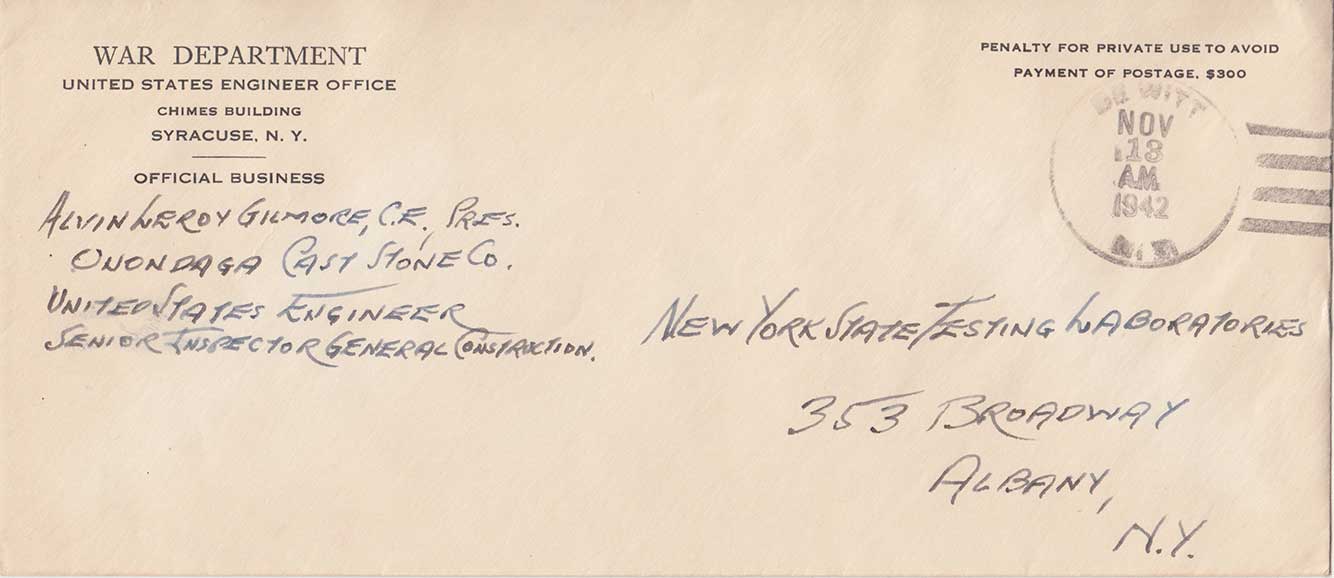 WAR DEPARTMENT
UNITED STATES ENGINEER OFFICE
CHIMES BUILDING
SYRACUSE, N. Y.
OFFICIAL BUSINESS
PENALTY FOR PRIVATE USE TO AVOID
PAYMENT OF POSTAGE, $300
DE WITT
NOV
13
AM
1942
N.Y.
ALVIN LEROY GILMORE, C.E., PRES.
ONONDAGA CAST STONE CO.
UNITED STATES ENGINEER
SENIOR INSPECTOR GENERAL CONSTRUCTION.
NEW YORK STATE TESTING LABORATORIES
353 BROADWAY
ALBANY,
N.Y.